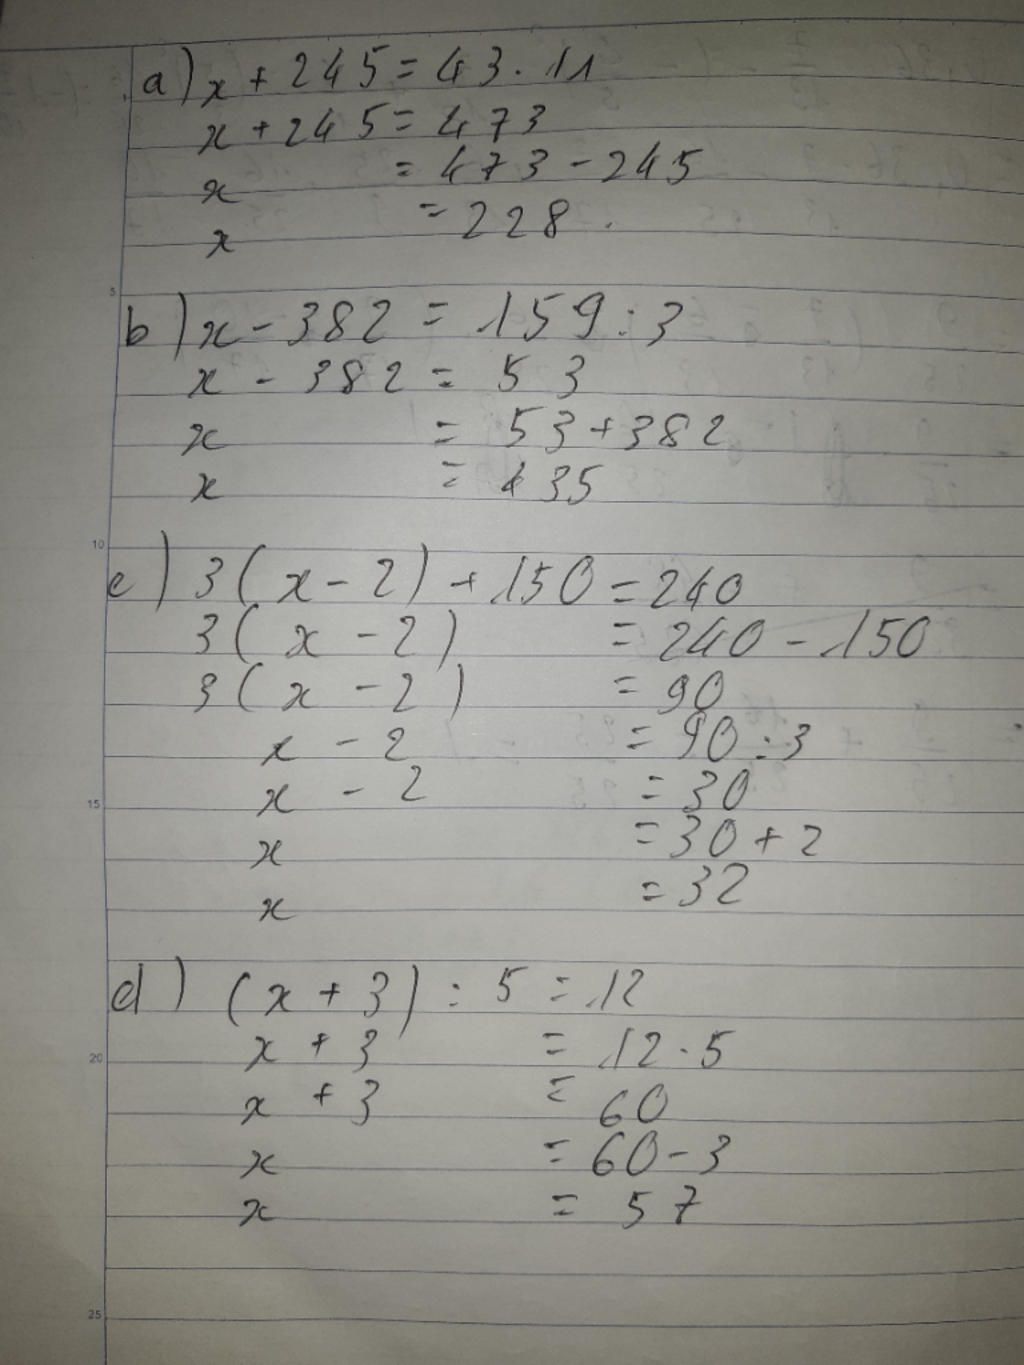 a) x + 245 = 43 . 11
x + 245 = 473
x = 473 - 245
x = 228 .
b) x - 382 = 159 : 3
x - 382 = 53
x = 53 + 382
x = 435
c) 3 ( x - 2 ) + 150 = 240
3 ( x - 2 ) = 240 - 150
3 ( x - 2 ) = 90
x - 2 = 90 : 3
x - 2 = 30
x = 30 + 2
x = 32
d) ( x + 3 ) : 5 = 12
x + 3 = 12 . 5
x + 3 = 60
x = 60 - 3
x = 57
5
10
15
20
25